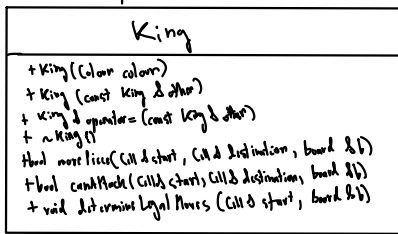 King
+ King (Colour colour)
+ King (const King & other)
+ King & operator= (const King & other)
+ ~King()
+bool movePiece (Cell & start, Cell & destination, board &b)
+bool canAttack (Cell & start, Cell & destination, board &b)
+ void determineLegalMoves (Cell & start, board &b)